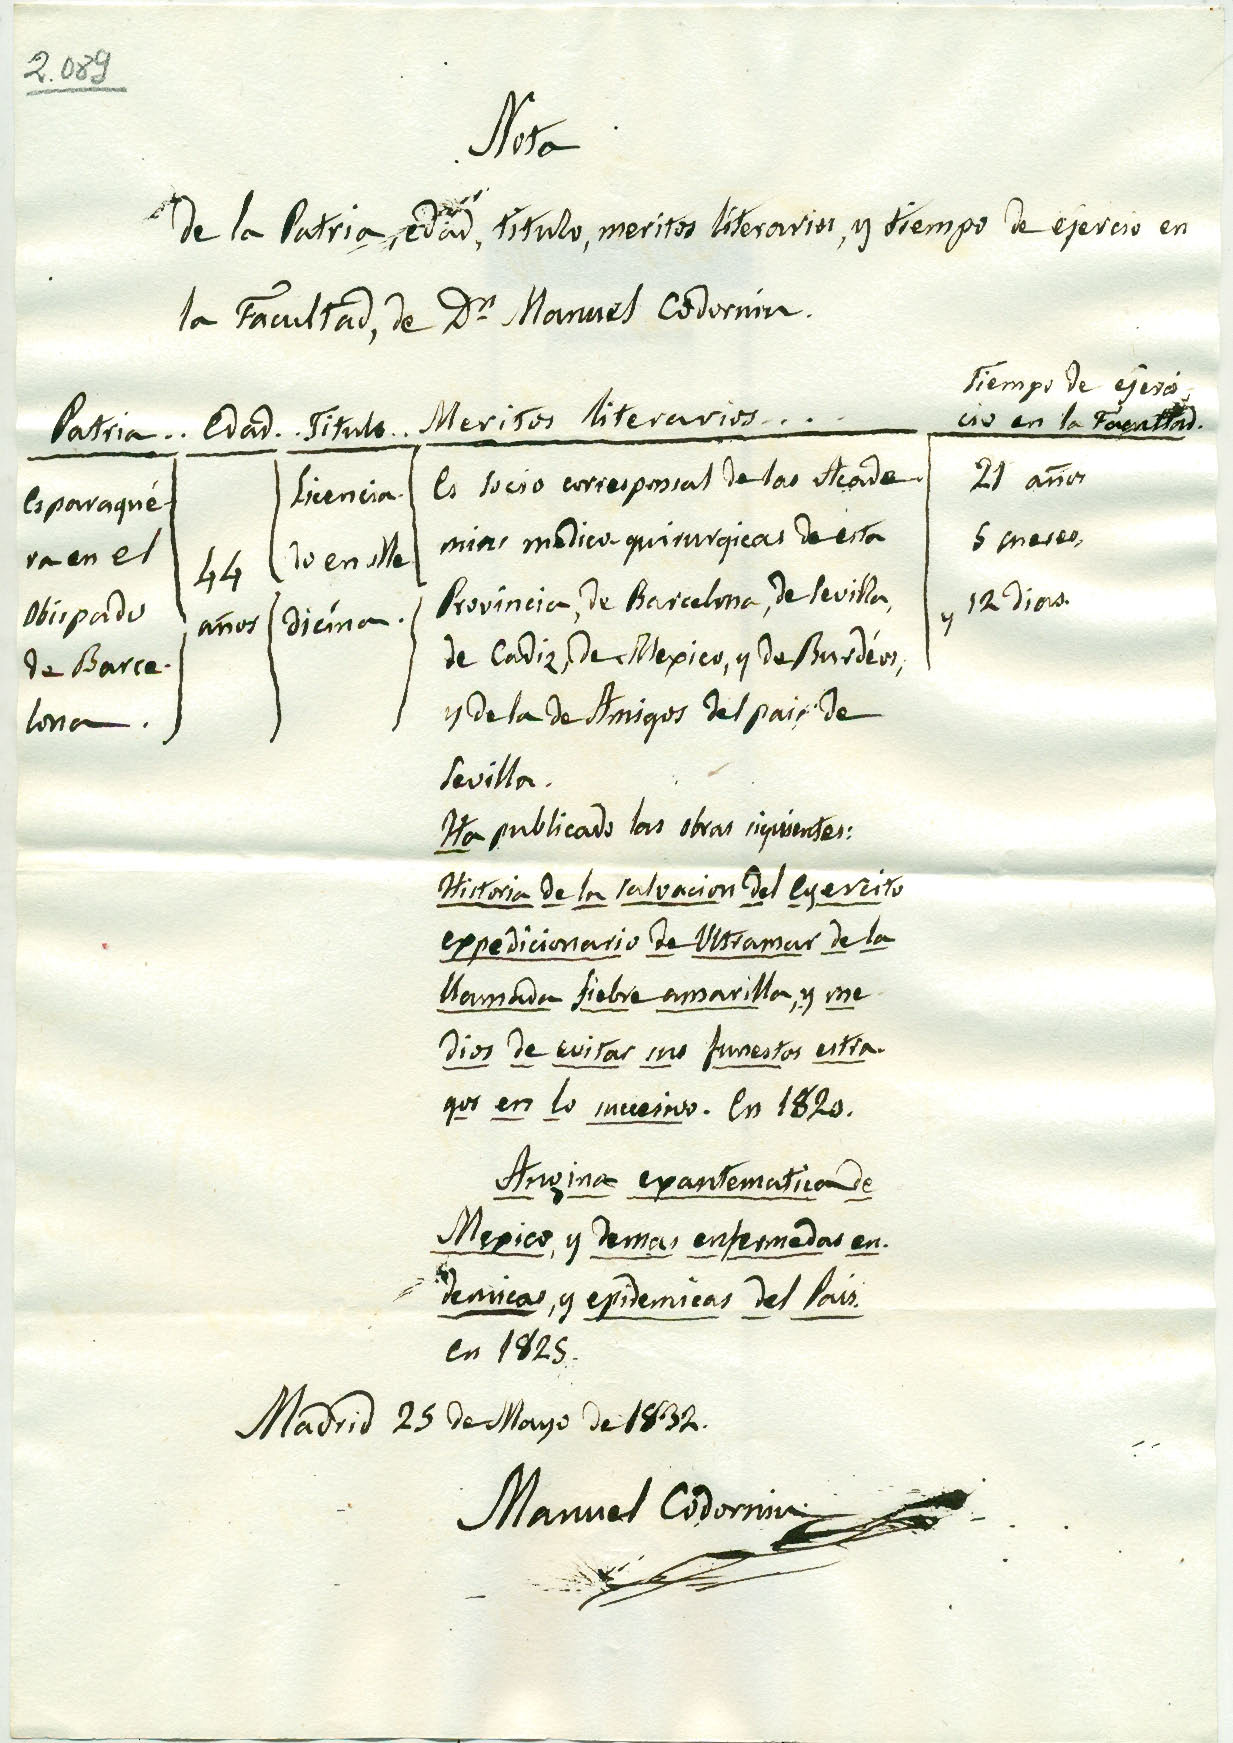 2.089
Nota
de la Patria, edad, titulo, meritos literarios, y tiempo de ejercio en
la Facultad, de Dn Manuel Codorniu.
Patria.. Edad.. Titulo.. Meritos literarios....
Tiempo de ejerci
cio en la Facultad.
Esparagué-
ra en el
Obispado
de Barce-
lona.
44
años
Licencia-
do en Me
dicina.
Es socio corresponsal de las Acade-
mias medico-quirurgicas de esta
Provincia, de Barcelona, de Sevilla,
de Cadiz, de Mexico, y de Burdéos,
y de la de Amigos del pais de
Sevilla.
Ha publicado las obras siguientes:
Historia de la salvacion del Egercito
expedicionario de Ultramar de la
llamada fiebre amarilla, y me
dios de evitar sus funestos estra-
gos en lo sucesivo. En 1820.
Angina exantematica de
Mexico, y demas enfermedas en-
demicas, y epidemicas del Pais.
en 1825.
21 años
5 meses,
y 12 dias.
Madrid 25 de Mayo de 1832.
Manuel Codorniu